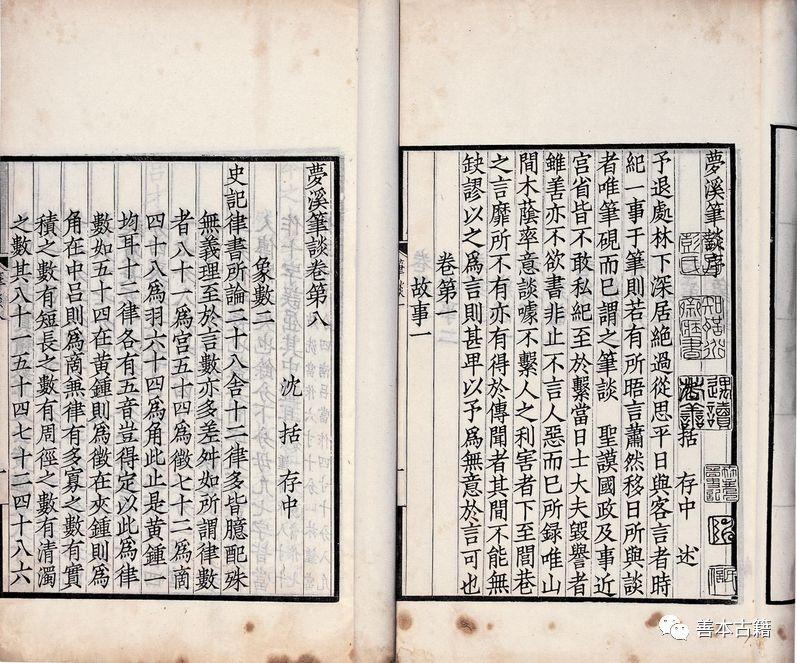 夢溪筆談序
括 存中 述
予退處林下深居絶過從思平日與客言者時
紀一事于筆則若有所晤言蕭然移日所與談
者唯筆硯而已謂之筆談 聖謨國政及事近
宮省皆不敢私紀至於繫當日士大夫毀譽者
雖善亦不欲書非止不言人惡而已所録唯山
間木蔭率意談噱不繫人之利害者下至閭巷
之言靡所不有亦有得於傳聞者其間不能無
缺謬以之爲言則甚卑以予爲無意於言可也
卷第一
故事一
筆談一
夢溪筆談卷第八
沈括 存中
象數二
史記律書所論二十八舍十二律多皆臆配殊
無義理至於言數亦多差舛如所謂律數
者八十一爲宮五十四爲徵七十二爲商
四十八爲羽六十四爲角此止是黄鍾一
均耳十二律各有五音豈得定以此爲律
數如五十四在黄鍾則爲徵在夾鍾則爲
角在中吕則爲商兼律有多寡之數有實
積之數有短長之數有周徑之數有清濁
之數其八十一五十四七十二四十八六
善本古籍